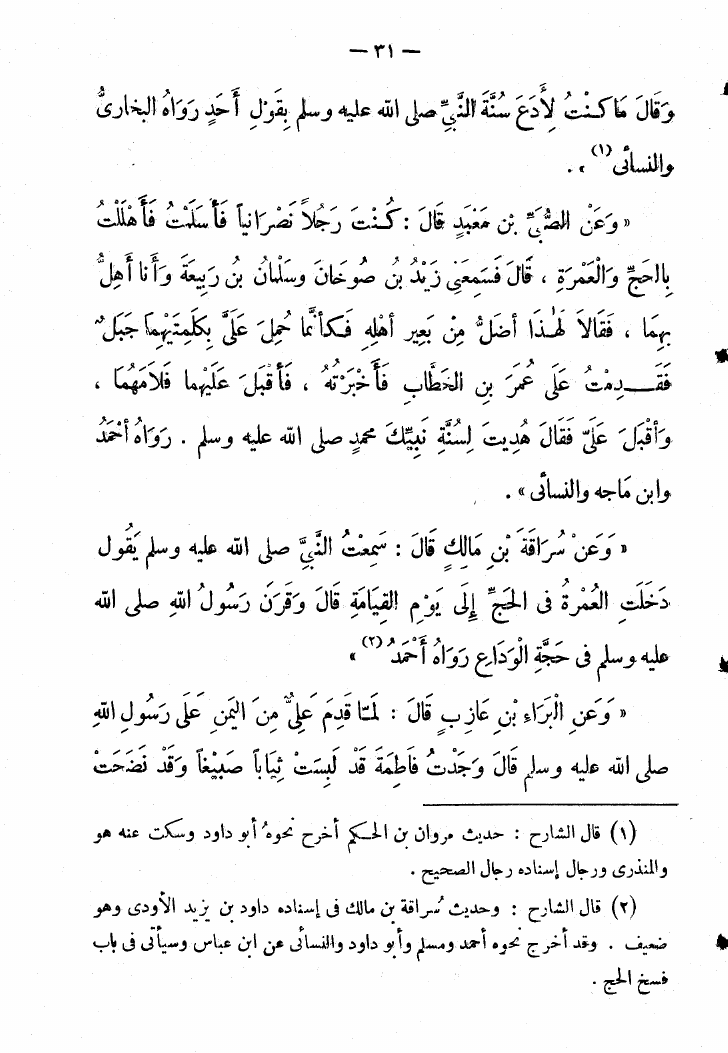 — ٣١ —
وَقَالَ مَا كُنْتُ لِأَدَعَ سُنَّةَ النَّبِيِّ صلى الله عليه وسلم بِقَوْلِ أَحَدٍ رَوَاهُ البخارىُّ
والنسائى(١) » .
« وَعَنْ الصُّبَيِّ بْنِ مَعْبَدٍ قَالَ : كُنْتَ رَجُلاً نَصْرَانياً فَأَسْلَمْتُ فَأَهْلَلْتُ
بِالحَجِّ وَالْعَمْرَةِ ، قَالَ فَسَمِعَنِى زَيْدُ بْنُ صُوخَانَ وَسَلْمَانُ بْنُ رَبِيعَةَ وَأَنا أُهِلُّ
بِهِمَا ، فَقَالاَ لَهٰذَا أَضَلُّ مِنْ بَعِيرِ أَهْلِهِ فَكَأَنَّمَا حُمِلَ عَلَىَّ بِكَلِمَتَيْهِمَا جَبَلٌ
فَقَدِمْتُ عَلَى عُمَرَ بنِ الخَطَّابِ فَأَخْبَرْتُهُ ، فَأَقْبَلَ عَلَيْهِما فَلاَمَهُمَا ،
وَأَقْبَلَ عَلَىَّ فَقَالَ هُدِيتَ لِسُنَّةِ نَبِيِّكَ محمدٍ صلى الله عليه وسلم . رَوَاهُ أَحْمَدُ
وابن مَاجه والنسائى » .
« وَعَنْ سُرَاقَةَ بْنِ مَالِكٍ قَالَ : سَمِعْتُ النَّبِيَّ صلى الله عليه وسلم يَقُول
دَخَلَتِ العُمْرَةُ فى الحَجِّ إِلَى يَوْمِ القِيَامَةِ قَالَ وَقَرَنَ رَسُولُ اللهِ صلى الله
عليه وسلم فى حَجَّةِ الْوَدَاعِ رَوَاهُ أَحْمَدُ(٢) »
« وَعَنِ الْبَرَاءِ بْنِ عَازِبٍ قَالَ : لَمَّا قَدِمَ عَلِىٌّ مِنَ اليَمَنِ عَلَى رَسُولِ اللهِ
صلى الله عليه وسلم قَالَ وَجَدْتُ فَاطِمَةَ قَدْ لَبِسَتْ ثِيَاباً صَبِيغاً وَقَدْ نَضَحَتْ
(١) قال الشارح : حديث مروان بن الحكم أخرج نحوه أبو داود وسكت عنه هو
والمنذرى ورجال إسناده رجال الصحيح .
(٢) قال الشارح : وحديث سُراقة بن مالك فى إسناده داود بن يزيد الأودى وهو
ضعيف . وقد أخرج نحوه أحمد ومسلم وأبو داود والنسائى عن ابن عباس وسيأتى فى باب
فسخ الحج .